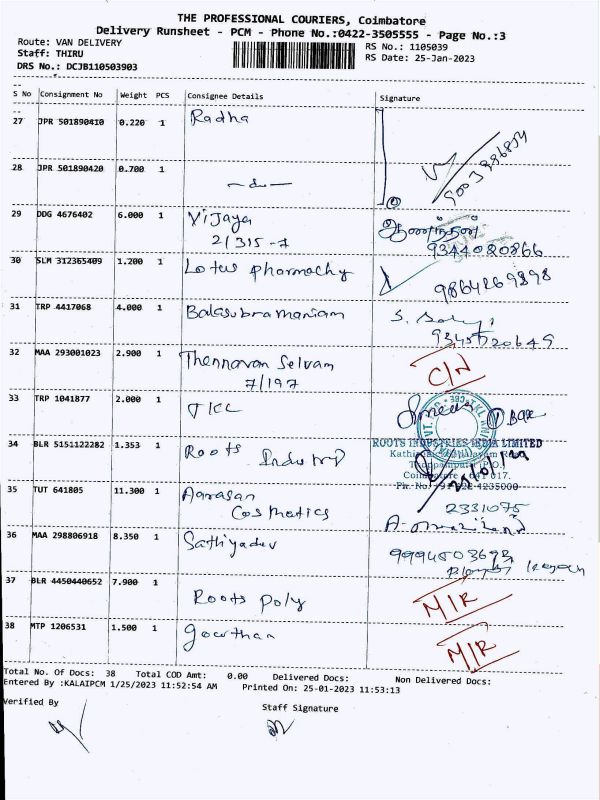 THE PROFESSIONAL COURIERS, Coimbatore
Delivery Runsheet - PCM - Phone No.:0422-3505555 - Page No.:3
Route: VAN DELIVERY
RS No.: 1105039
Staff: THIRU
RS Date: 25-Jan-2023
DRS No.: DCJB110503903
S No Consignment No Weight PCS Consignee Details Signature
27 JPR 501890410 0.220 1 Radha
28 JPR 501890420 0.700 1 -do-
29 DDG 4676402 6.000 1 Vijaya ஆனந்தன்
2/315-7 9344020866
30 SLM 312365409 1.200 1 Lotus pharmachy 9864269898
31 TRP 4417068 4.000 1 Balasubramaniam
32 MAA 293001023 2.900 1 Thennavan Selvam C/N
7/197
33 TRP 1041877 2.000 1
34 BLR 5151122282 1.353 1 Roots ROOTS INDUSTRIES INDIA LIMITED
35 TUT 641805 11.300 1 Aarasan 2331075
Cosmatics
36 MAA 298806918 8.350 1 Sathiyadev
37 BLR 4450440652 7.900 1 Roots poly M/R
38 MTP 1206531 1.500 1 Gowthan M/R
Total No. Of Docs: 38 Total COD Amt: 0.00 Delivered Docs: Non Delivered Docs:
Entered By :KALAIPCM 1/25/2023 11:52:54 AM Printed On: 25-01-2023 11:53:13
Verified By Staff Signature